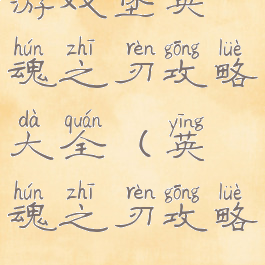 游戏堡英
hún zhī rèn gōng lüè
魂之刃攻略
dà quán yīng
大全(英
hún zhī rèn gōng lüè
魂之刃攻略